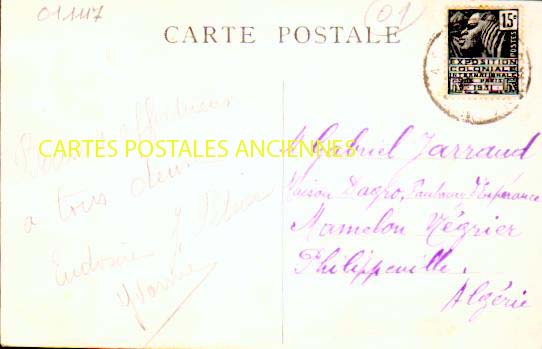 01117
01
CARTE POSTALE
15c
POSTES
EXPOSITION
COLONIALE
INTERNATIONALE
PARIS
1931
CARTES POSTALES ANCIENNES
à tous deux
Yvonne
Gabriel Jarraud
Maison Dagro, Faubourg d'Espérance
Mamelon Négrier
Philippeville.
Algérie